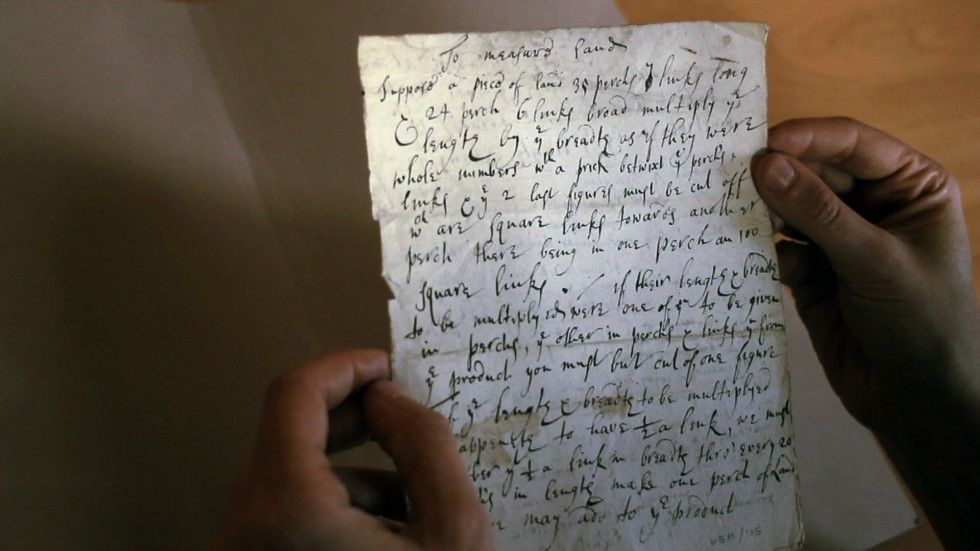 To measure land
Suppose a piece of land 35 perches 7 links long
& 24 perch 6 links broad multiply ye
length by ye breadth as if they were
whole numbers wth a prick betwixt ye perches,
links & ye 2 last figures must be cut off
wch are square links towards another
perch there being in one perch an 100
square links. / if their length & breadth
to be multiplyed were one of ym to be given
in perches, ye other in perches & links yn from
ye product you must but cut of one figure
ye length & breadth to be multiplyed
appeneth to have ½ a link, we must
ber yt ½ a link in breadth thro' every 20
in length make one perch of land
may add to ye product
WBM/105